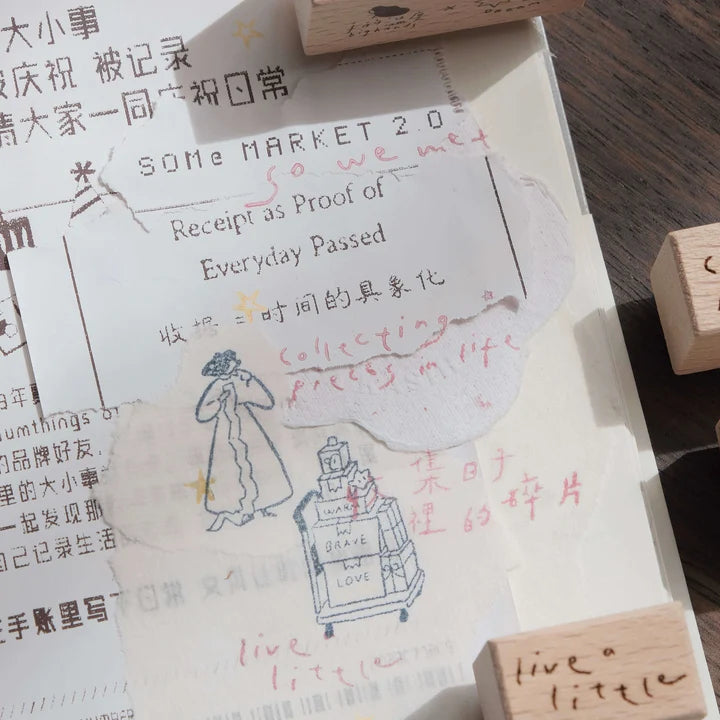 大小事
庆祝 被记录
请大家一同庆祝日常
SOMe MARKET 2.0
So we met
Receipt as Proof of
Everyday Passed
收据 时间的具象化
collecting
pieces in life
集日子
裡的碎片
umthings
的品牌好友,
里的大小事
一起发现那
自己记录生活
手账里写
WARM
BRAVE
LOVE
live a
little
live a
little